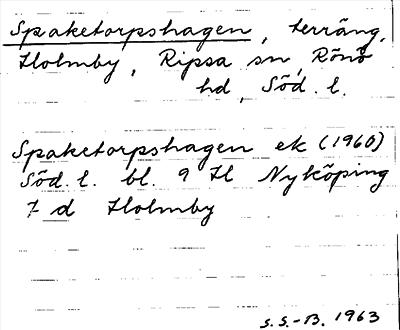 Spaketorpshagen, terräng,
Holmby, Ripsa sn, Rönö
hd, Söd. l.
Spaketorpshagen ek (1960)
Söd. l. bl. 9 H Nyköping
7 d Holmby
S.S.-B. 1963